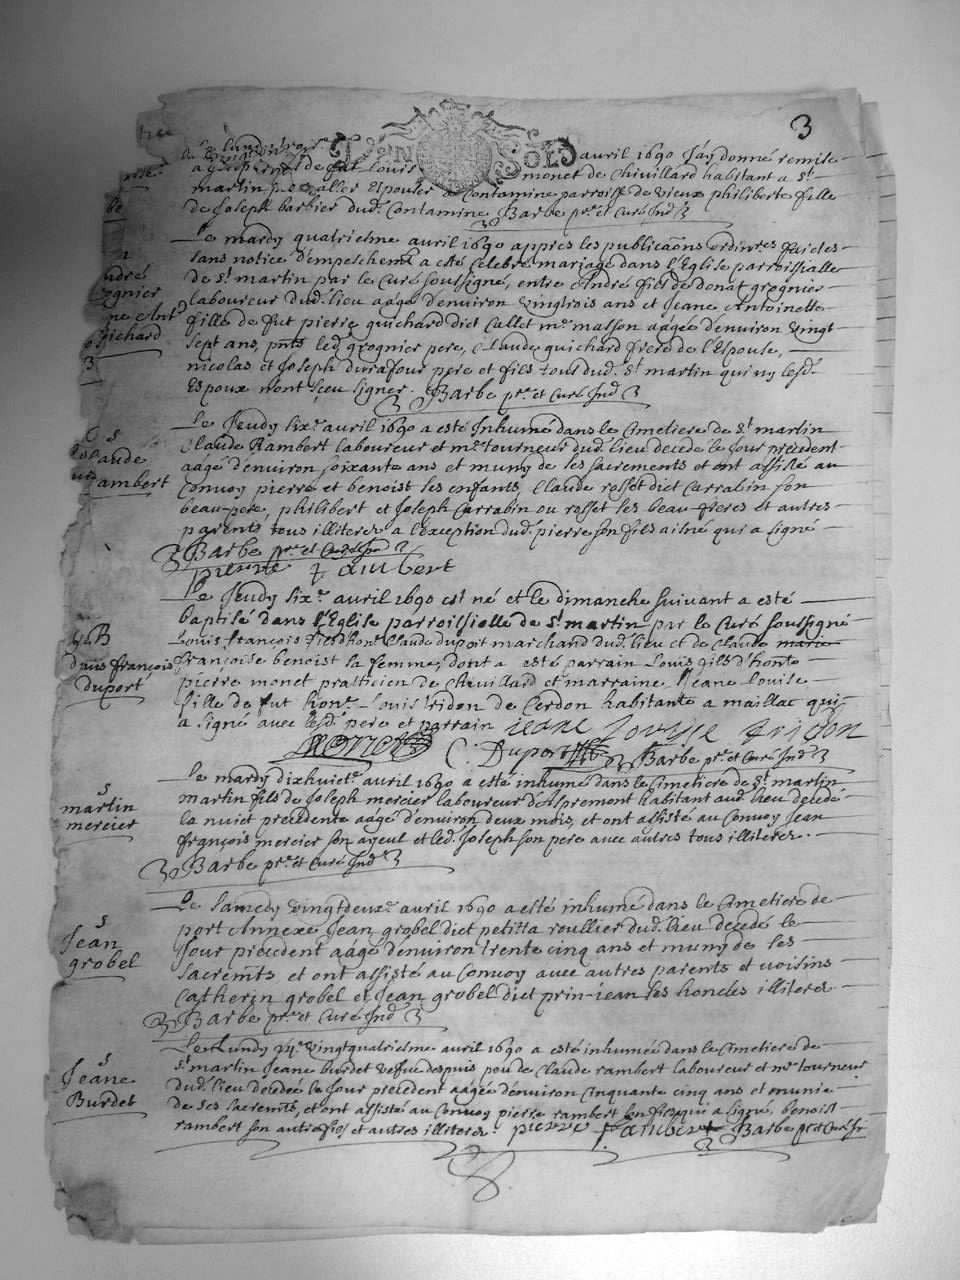 3
UN SOL
avril 1690 J'ay donné remise
a de fut Louis monet de Chivillard habitant a St
martin p aller Espouser a Contamine parroisse de vieux philiberte fille
de Joseph barbier dud. Contamine Barbe ptre et Curé Ind
Le mardy quatriesme avril 1690 appres les publicaõns ordinres faictes
sans notice d'empeschemt a esté Celebré mariage dans l'Eglise parroissialle
de St martin par le Curé soussigné, entre André fils de Donat grognier
laboureur dud. lieu aagé d'environ vingtrois ans et Jeane Antoinette
fille de fut pierre guichard dict Callet me masson aagée d'environ vingt
sept ans, pnts led. grognier pere, Claude guichard frere de l'Espouse,
nicolas et Joseph durafour pere et fils tous dud. St martin qui ny lesd.
Espoux n'ont sceu signer. Barbe ptre et Curé Ind
ndré
ognier
ne Ant
ichard
3
Le Jeudy sixe avril 1690 a esté Inhumé dans le Cimetiere de St martin
Claude Rambert laboureur et me tourneur dud. lieu decedé le Jour precedent
aagé d'environ soixante ans et muny de ses sacrements et ont assisté au
Convoy pierre et benoist ses enfants, Claude rosset dict Carrabin son
beau-pere, philibert et Joseph Carrabin ou rosset ses beau-freres et autres
parents tous illiteres a l'exception dud. pierre son fils aisné qui a signé
S
Claude
ambert
Barbe ptre et Curé Ind
pierre rambert
Le Jeudy sixe avril 1690 est né et le dimanche suivant a esté
baptisé dans l'Eglise parroissielle de St martin par le Curé soussigné
Louis françois fils d'hon. Claude duport marchand dud. lieu et de Claude marie
françoise benoist sa femme, dont a esté parrain Louis fils d'honte
pierre monet pratticien de Chivillard et marraine Jeane Louise
fille de fut honte Louis tridon de Cerdon habitante a maillac qui
a signé avec lesd. pere et parrain jeane louise tridon
B
françois
duport
monet C. Duport Barbe ptre et Curé Ind
Le mardy dixhuicte avril 1690 a esté inhumé dans le Cimetiere de St martin
martin fils de Joseph mercier laboureur d'Aspremont habitant aud. lieu decedé
la nuict precedente aagé d'environ deux mois, et ont assisté au Convoy Jean
françois mercier son ayeul et led. Joseph son pere avec autres tous illiteres.
S
martin
mercier
Barbe ptre et Curé Ind
Le Samedy vingtdeuxe avril 1690 a esté inhumé dans le Cimetiere de
port Annexe Jean grobel dict petitta roullier dud. lieu decedé le
Jour precedent aagé d'environ trente cinq ans et muny de ses
sacremts et ont assisté au Convoy avec autres parents et voisins
Catherin grobel et Jean grobel dict prin-jean ses honcles illiteres
S
Jean
grobel
Barbe ptre et Curé Ind
Le Lundy 24e vingtquatriesme avril 1690 a esté inhumée dans le Cimetiere de
St martin Jeane burdet vefve despuis peu de Claude rambert laboureur et me tourneur
dud. lieu decedée le Jour precedent aagée d'environ cinquante cinq ans et munie
de ses sacremts, et ont assisté au Convoy pierre rambert son fils qui a signé, benoist
rambert son autre fils et autres illiteres. pierre rambert Barbe ptre et Curé
S
Jeane
Burdet